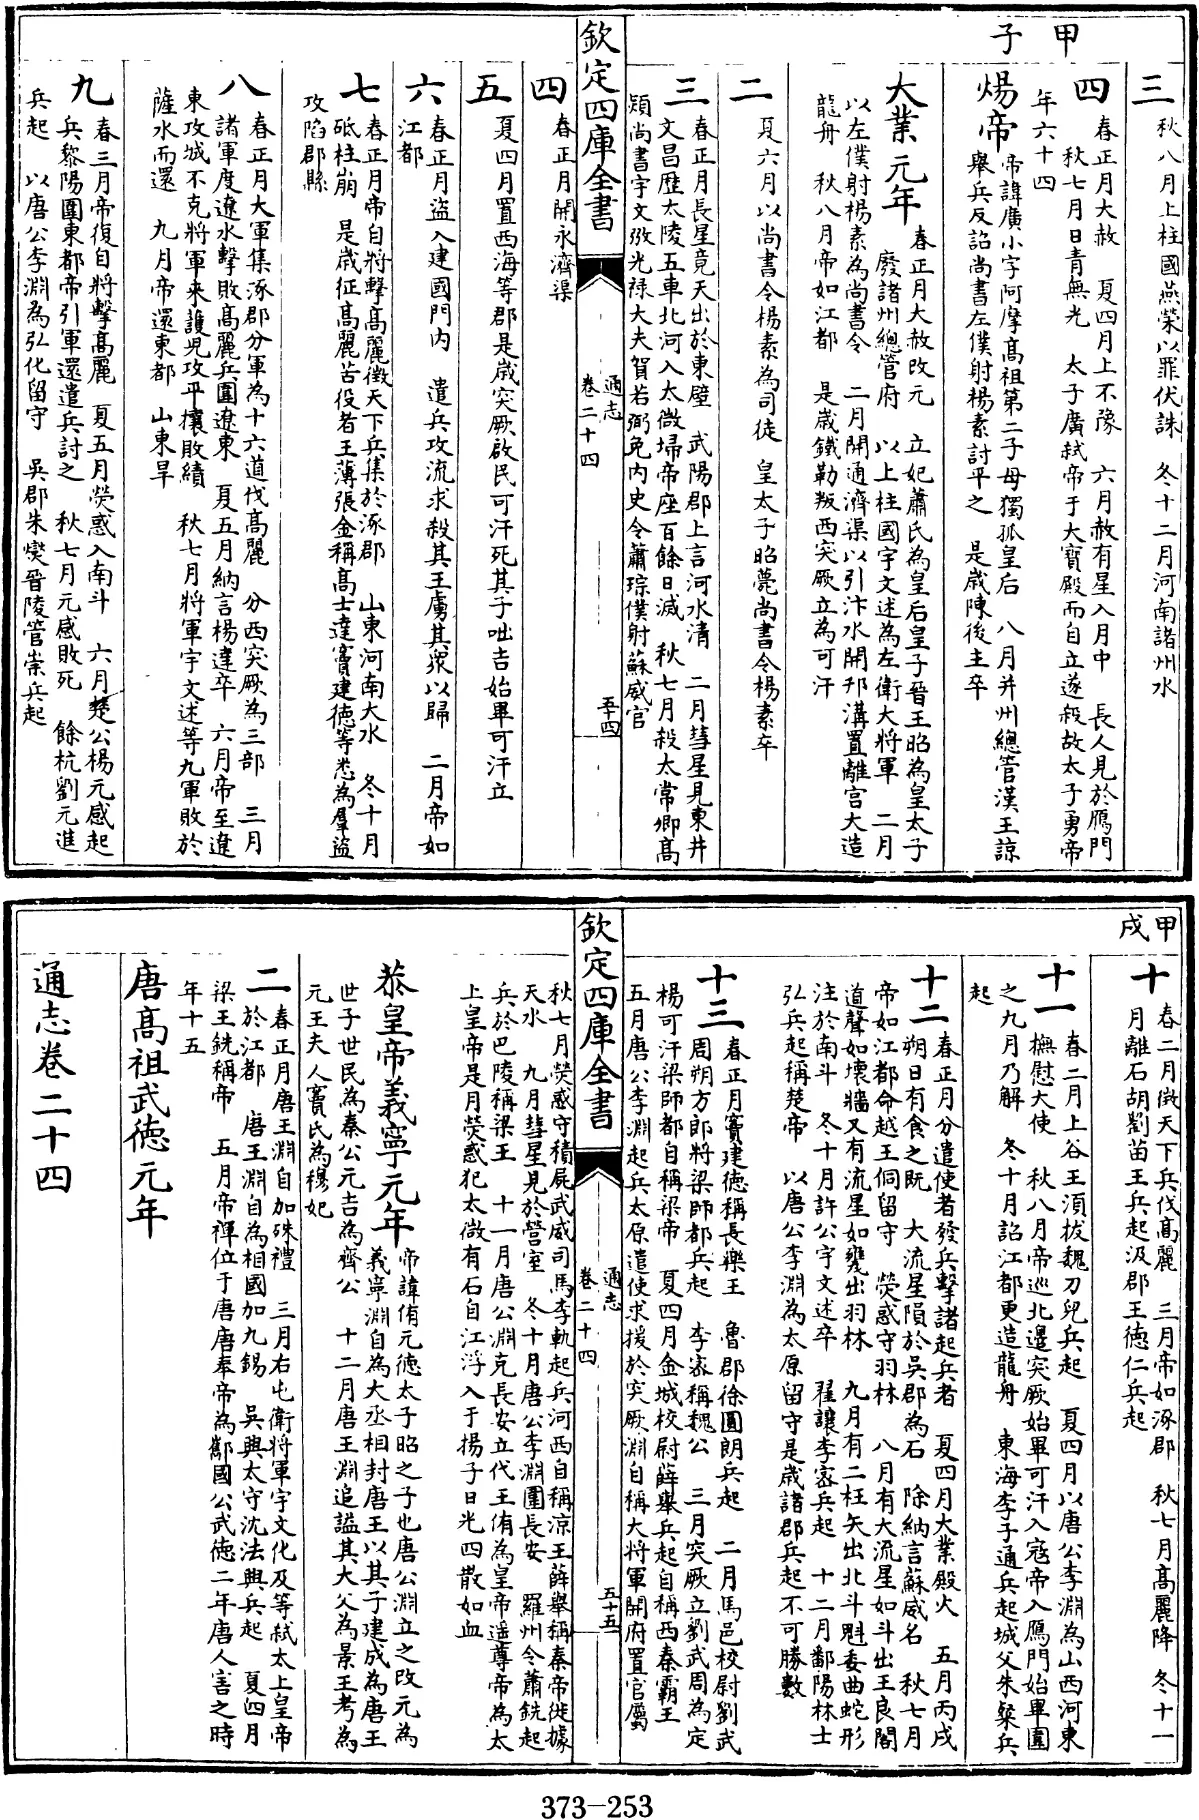 甲子
三
秋八月上柱國燕榮以罪伏誅　冬十二月河南諸州水
四
春正月大赦　夏四月上不豫　六月赦有星入月中　長人見於鴈門
秋七月日青無光　太子廣弒帝于大寶殿而自立遂殺故太子勇帝
年六十四
煬帝
帝諱廣小字阿摩髙祖第二子母獨孤皇后　八月并州總管漢王諒
舉兵反詔尚書左僕射楊素討平之　是歳陳後主卒
大業元年
春正月大赦改元　立妃蕭氏為皇后皇子晉王昭為皇太子
廢諸州總管府　以上柱國宇文述為左衛大將軍　二月
以左僕射楊素為尚書令　二月開通濟渠以引汴水開邗溝置離宫大造
龍舟　秋八月帝如江都　是歳鐵勒叛西突厥立為可汗
二
夏六月以尚書令楊素為司徒　皇太子昭薨尚書令楊素卒
三
春正月長星竟天出於東壁　武陽郡上言河水清　二月彗星見東井
文昌歴太陵五車北河入太微埽帝座百餘日滅　秋七月殺太常卿髙
熲尚書宇文㢸光禄大夫賀若弼免内史令蕭琮僕射蘇威官
欽定四庫全書
通志
卷二十四
五十四
四
春正月開永濟渠
五
夏四月置西海等郡是歳突厥啟民可汗死其子咄吉始畢可汗立
六
春正月盜入建國門内　遣兵攻流求殺其王虜其衆以歸　二月帝如
江都
七
春正月帝自將擊髙麗徵天下兵集於涿郡　山東河南大水　冬十月
砥柱崩　是歳征髙麗苦役者王薄張金稱髙士達竇建德等悉為羣盜
攻陷郡縣
八
春正月大軍集涿郡分軍為十六道伐髙麗　分西突厥為三部　三月
諸軍度遼水擊敗髙麗兵圍遼東　夏五月納言楊達卒　六月帝至遼
東攻城不克將軍来護兒攻平壤敗績　秋七月將軍宇文述等九軍敗於
薩水而還　九月帝還東都　山東旱
九
春三月帝復自將擊髙麗　夏五月熒惑入南斗　六月楚公楊元感起
兵黎陽圍東都帝引軍還遣兵討之　秋七月元感敗死　餘杭劉元進
兵起　以唐公李淵為弘化留守　吳郡朱燮晉陵管崇兵起
甲戌
十
春二月徴天下兵伐髙麗　三月帝如涿郡　秋七月髙麗降　冬十一
月離石胡劉苗王兵起汲郡王德仁兵起
十一
春二月上谷王湏拔魏刀兒兵起　夏四月以唐公李淵為山西河東
撫慰大使　秋八月帝巡北邊突厥始畢可汗入寇帝入鴈門始畢圍
之九月乃解　冬十月詔江都更造龍舟　東海李子通兵起城父朱粲兵
起
十二
春正月分遣使者發兵擊諸起兵者　夏四月大業殿火　五月丙戌
朔日有食之既　大流星隕於吳郡為石　除納言蘇威名　秋七月
帝如江都命越王侗留守　熒惑守羽林　八月有大流星如斗出王良閣
道聲如壊牆又有流星如甕出羽林　九月有二枉矢出北斗魁委曲蛇形
注於南斗　冬十月許公宇文述卒　翟讓李宻兵起　十二月鄱陽林士
弘兵起稱楚帝　以唐公李淵為太原留守是歳諸郡兵起不可勝數
十三
春正月竇建徳稱長樂王　魯郡徐圓朗兵起　二月馬邑校尉劉武
周朔方郎將梁師都兵起　李宻稱魏公　三月突厥立劉武周為定
楊可汗梁師都自稱梁帝　夏四月金城校尉薛舉兵起自稱西秦霸王
五月唐公李淵起兵太原遣使求援於突厥淵自稱大將軍開府置官屬
欽定四庫全書
通志
卷二十四
五十五
秋七月熒惑守積屍武威司馬李軌起兵河西自稱涼王薛舉稱秦帝徙據
天水　九月彗星見於營室　冬十月唐公李淵圍長安　羅州令蕭銑起
兵於巴陵稱梁王　十一月唐公淵克長安立代王侑為皇帝遥尊帝為太
上皇帝是月熒惑犯太微有石自江浮入于揚子日光四散如血
恭皇帝義寧元年
帝諱侑元徳太子昭之子也唐公淵立之改元為
義寧淵自為大丞相封唐王以其子建成為唐王
世子世民為秦公元吉為齊公　十二月唐王淵追謚其大父為景王考為
元王夫人竇氏為穆妃
二
春正月唐王淵自加殊禮　三月右屯衛將軍宇文化及等弒太上皇帝
於江都　唐王淵自為相國加九錫　吳興太守沈法興兵起　夏四月
梁王銑稱帝　五月帝禪位于唐唐奉帝為酅國公武徳二年唐人害之時
年十五
唐髙祖武徳元年
通志卷二十四
373-253